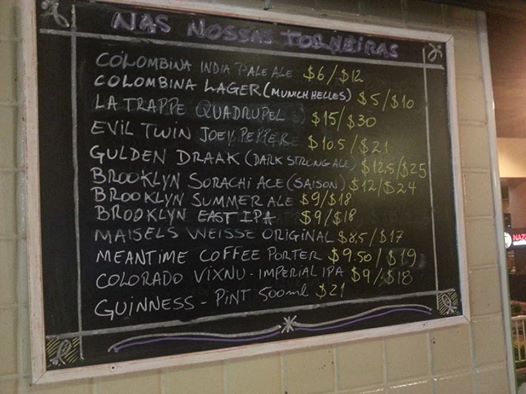 NAS NOSSAS TORNEIRAS
COLOMBINA INDIA PALE ALE $6/$12
COLOMBINA LAGER (MUNICH HELLES) $5/$10
LA TRAPPE QUADRUPEL $15/$30
EVIL TWIN JOEY PEPPER $10.5/$21
GULDEN DRAAK (DARK STRONG ALE) $12.5/$25
BROOKLYN SORACHI ACE (SAISON) $12/$24
BROOKLYN SUMMER ALE $9/$18
BROOKLYN EAST IPA $9/$18
MAISELS WEISSE ORIGINAL $8.5/$17
MEANTIME COFFEE PORTER $9.50/$19
COLORADO VIXNU - IMPERIAL IPA $9/$18
GUINNESS - PINT 500ml $21